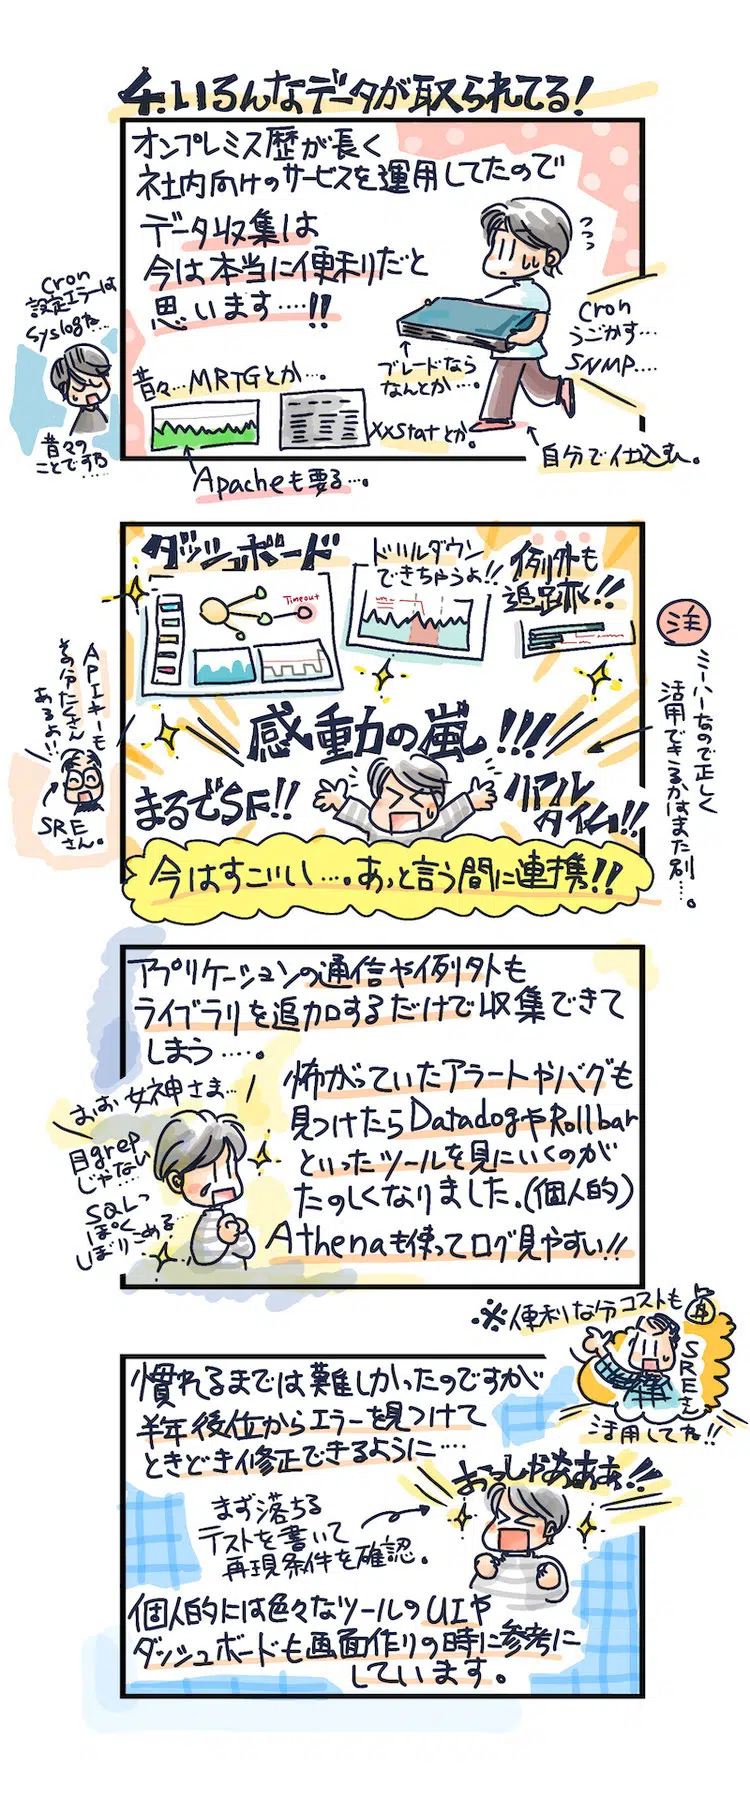 4.いろんなデータが取られてる!
オンプレミス歴が長く
社内向けのサービスを運用してたので
データ収集は
今は本当に便利だと
思います....!!
Cron
設定エラーは
Syslogだ...
昔々の
ことですな
....
ブレードなら
なんとか....。
Cron
うごかす...
SNMP....
昔々...MRTGとか...。
xxStatとか。
自分で仕込む。
Apacheも要る...。
ダッシュボード
Timeout
ドリルダウン
できちゃうよ!!
例外も
追跡!!
注
ミーハーなので正しく
活用できるかはまた別...。
APIキーも
その分たくさん
あるよ...
SRE
さん。
感動の嵐!!!
まるでSF!!
リアル
タイム!!
今はすごいし...。あっと言う間に連携!!
アプリケーションの通信や例外も
ライブラリを追加するだけで収集できて
しまう....。
おお女神さま...
目grep
じゃない
SQLっ
ぽく
しぼりこめる...
怖がっていたアラートやバグも
見つけたらDatadogやRollbar
といったツールを見にいくのが
たのしくなりました。(個人的)
Athenaも使ってログ見やすい!!
※便利な分コストも
SREさん
活用してね!!
慣れるまでは難しかったのですが
半年後位からエラーを見つけて
ときどき修正できるように....
おっしゃあああ!!
まず落ちる
テストを書いて
再現条件を確認。
個人的には色々なツールのUIや
ダッシュボードも画面作りの時に参考に
しています。